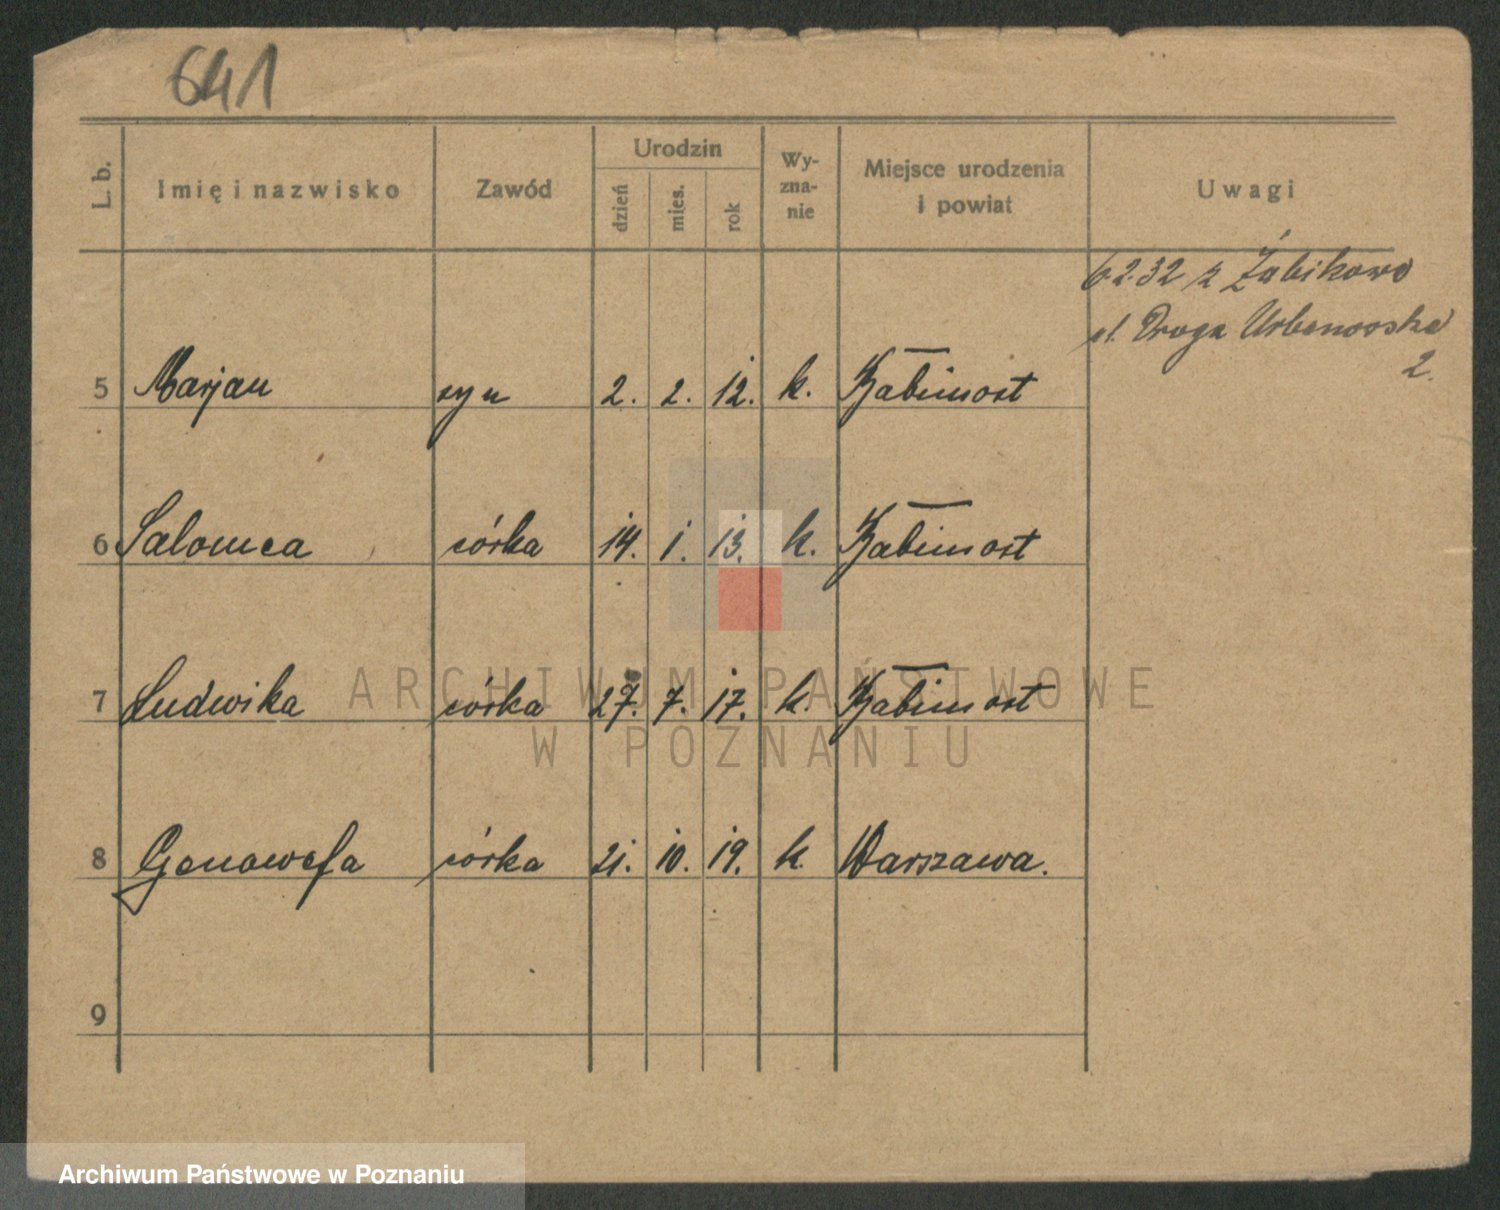 641
L. b.
Imię i nazwisko
Zawód
Urodzin
dzień
mies.
rok
Wy-
zna-
nie
Miejsce urodzenia
i powiat
Uwagi
6 2.32 z Żabikowo
ul. Droga Urbanowska
2.
5 Marjan syn 2. 2. 12. k. Babimost
6 Salomea córka 14. 1. 13. k. Babimost
7 Ludwika córka 27. 7. 17. k. Babimost
8 Genowefa córka 21. 10. 19. k. Warszawa.
9
ARCHIWUM PAŃSTWOWE
W POZNANIU
Archiwum Państwowe w Poznaniu